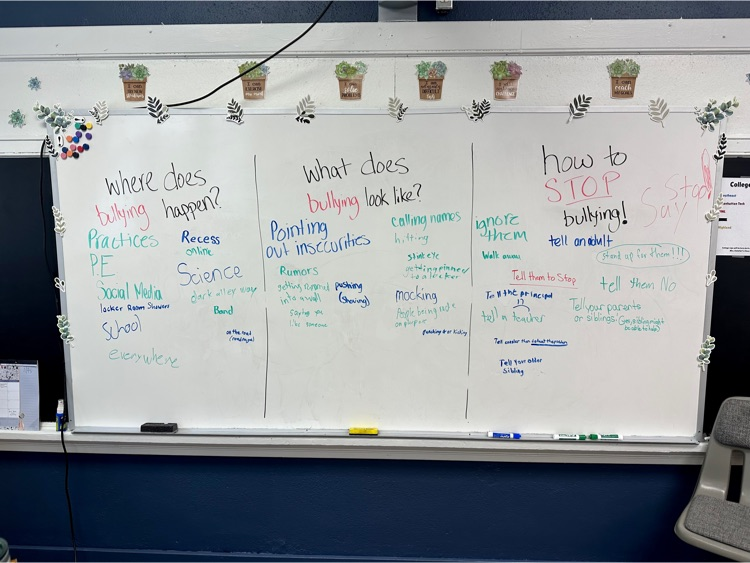 where does
bullying happen?
Practices
P.E
Social Media
locker Room Showers
School
everywhere
Recess
online
Science
dark alley way
Band
on the road
what does
bullying look like?
Pointing
out insecurities
Rumors
getting
into a wall
like someone
pushing
(shoving)
calling names
hitting
side eye
getting pinned
to a locker
mocking
People being rude
on purpose
Punching or Kicking
how to
STOP
bullying!
Say Stop!
ignore
them
Walk away
tell an adult
Stand up for them!!!
Tell them to Stop
tell them No
Tell the principal
tell a teacher
Tell your parents
or siblings
Tell your older
Sibling
College